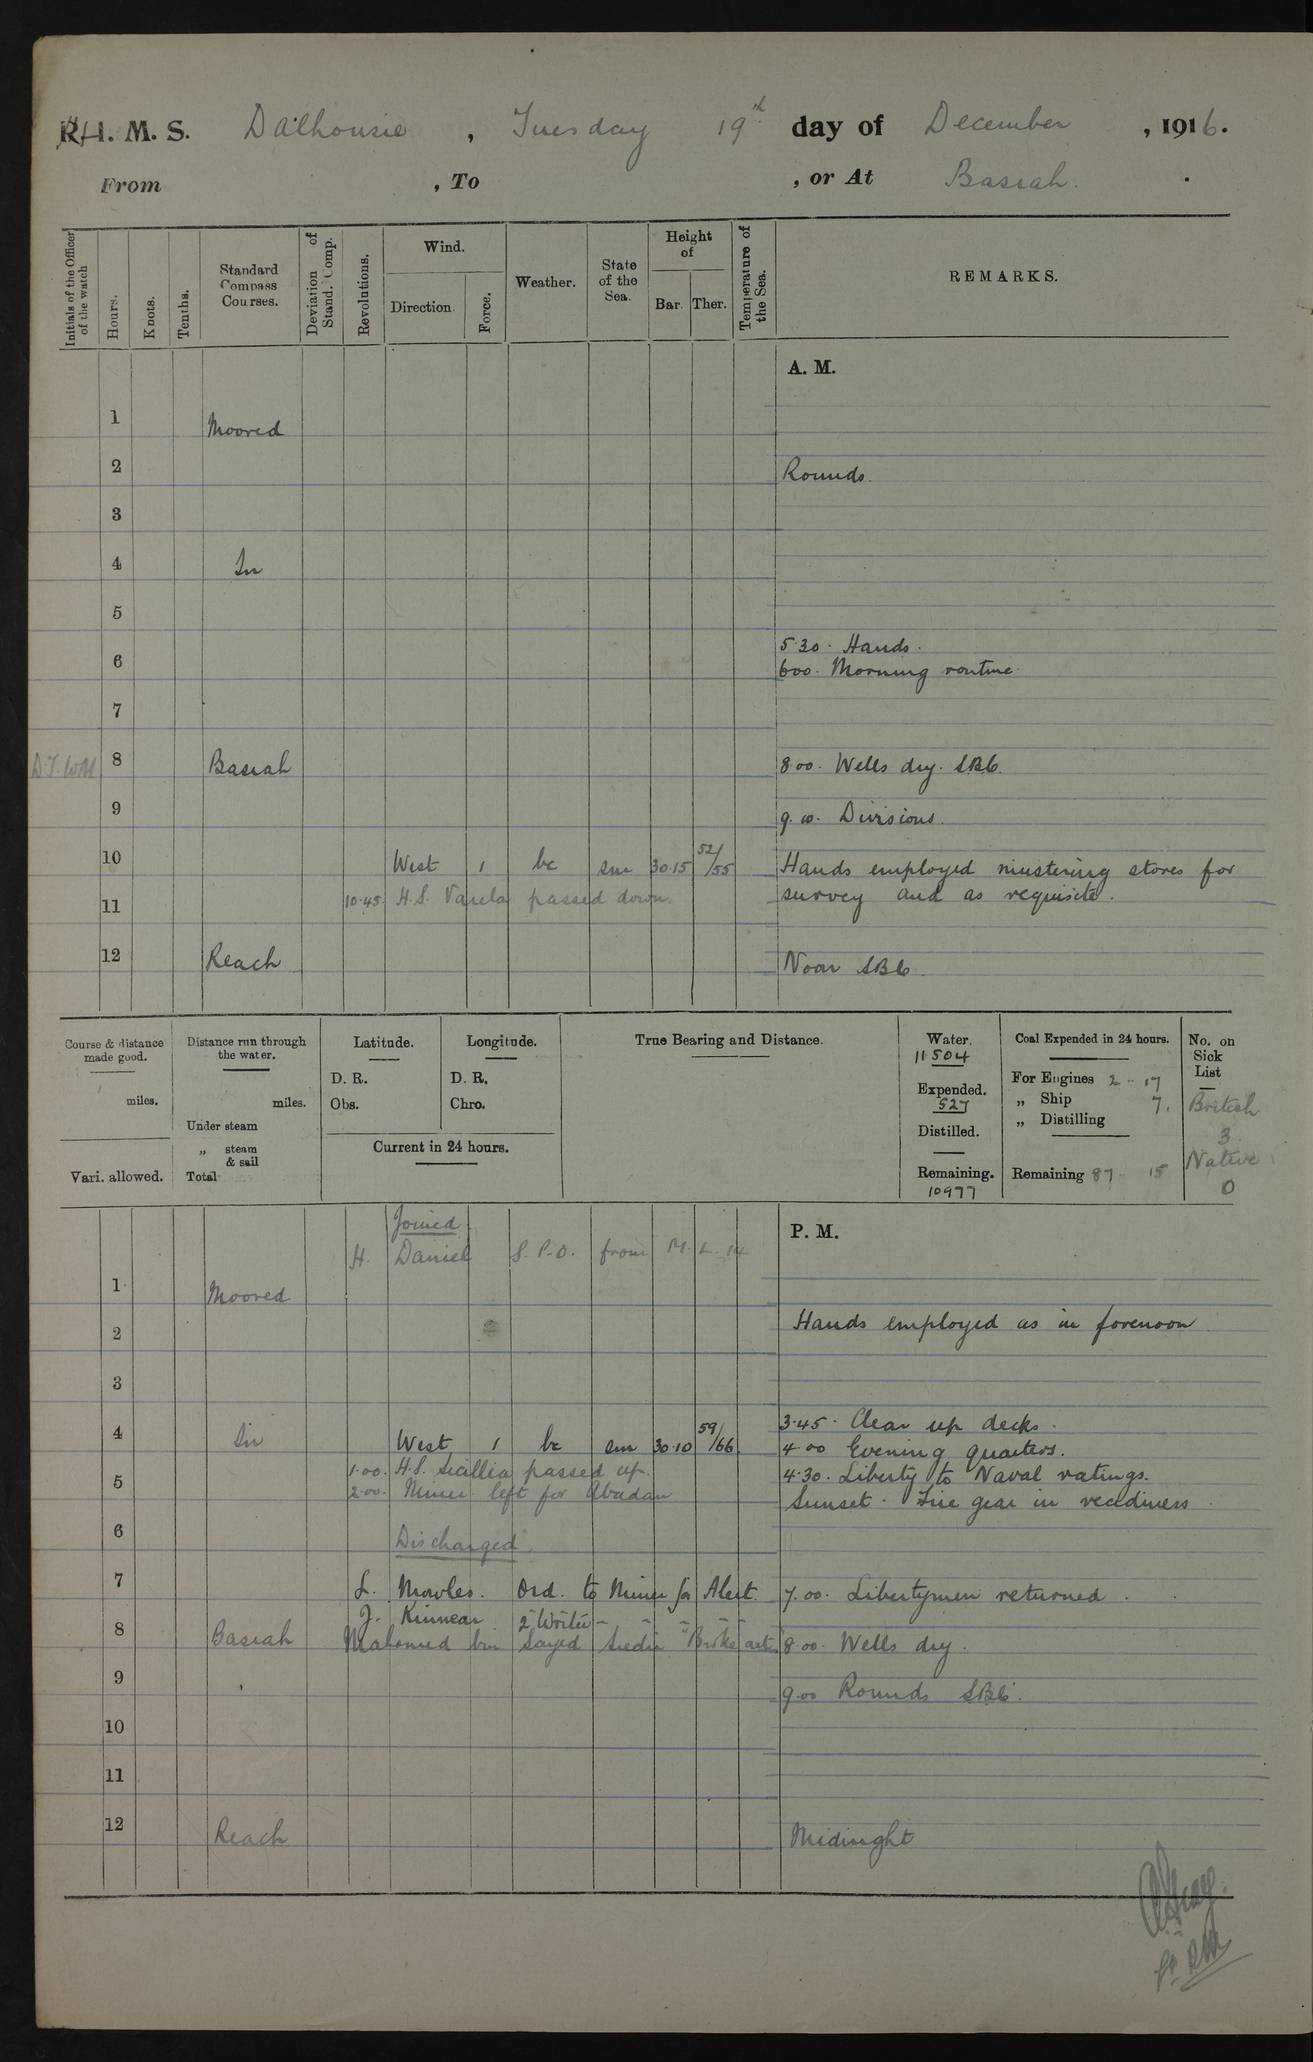 H. M. S. Dalhousie, Tuesday 19th day of December, 1916.
From , To , or At Basrah.
Initials of the Officer of the watch
Hours.
Knots.
Tenths.
Standard Compass Courses.
Deviation of Stand. Comp.
Revolutions.
Wind.
Direction.
Force.
Weather.
State of the Sea.
Height of
Bar. Ther.
Temperature of the Sea.
REMARKS.
A. M.
1 Moored
2 Rounds.
3
4 In
5
5.30. Hands.
6 6.00. Morning routine
7
8 Basrah 8.00. Wells dry. SBC.
9 9.10. Divisions.
10 West 1 bc sm 30.15 52/55 Hands employed mustering stores for
11 10.45. H.S. Varela passed down. survey and as requisite.
12 Reach Noon SBC.
Course & distance made good.
miles.
Vari. allowed.
Distance run through the water.
miles.
Under steam
„ steam & sail
Total
Latitude.
D. R.
Obs.
Longitude.
D. R.
Chro.
Current in 24 hours.
True Bearing and Distance.
Water.
11504
Expended.
527
Distilled.
Remaining.
10977
Coal Expended in 24 hours.
For Engines 2 .. 17
„ Ship 7.
„ Distilling
Remaining 87 .. 15
No. on Sick List
British
3
Native
0
P. M.
Joined
H. Daniel S.P.O. from M.L. 14
1 Moored
2 Hands employed as in forenoon
3
3.45. Clear up decks.
4 In West 1 bc sm 30.10 59/66 4.00 Evening quarters.
1.00. H.S. Sicillia passed up. 4.30. Liberty to Naval ratings.
5 2.00. Miner left for Abadan Sunset. Fire gear in readiness
6 Discharged.
7 L. Mowles. Ord. to Miner for Alert. 7.00. Libertymen returned.
J. Kinnear 2nd Writer " " " "
8 Basrah Mahomed bin Sayed Seedie 8.00. Wells dry.
9 9.00 Rounds SBC.
10
11
12 Reach Midnight